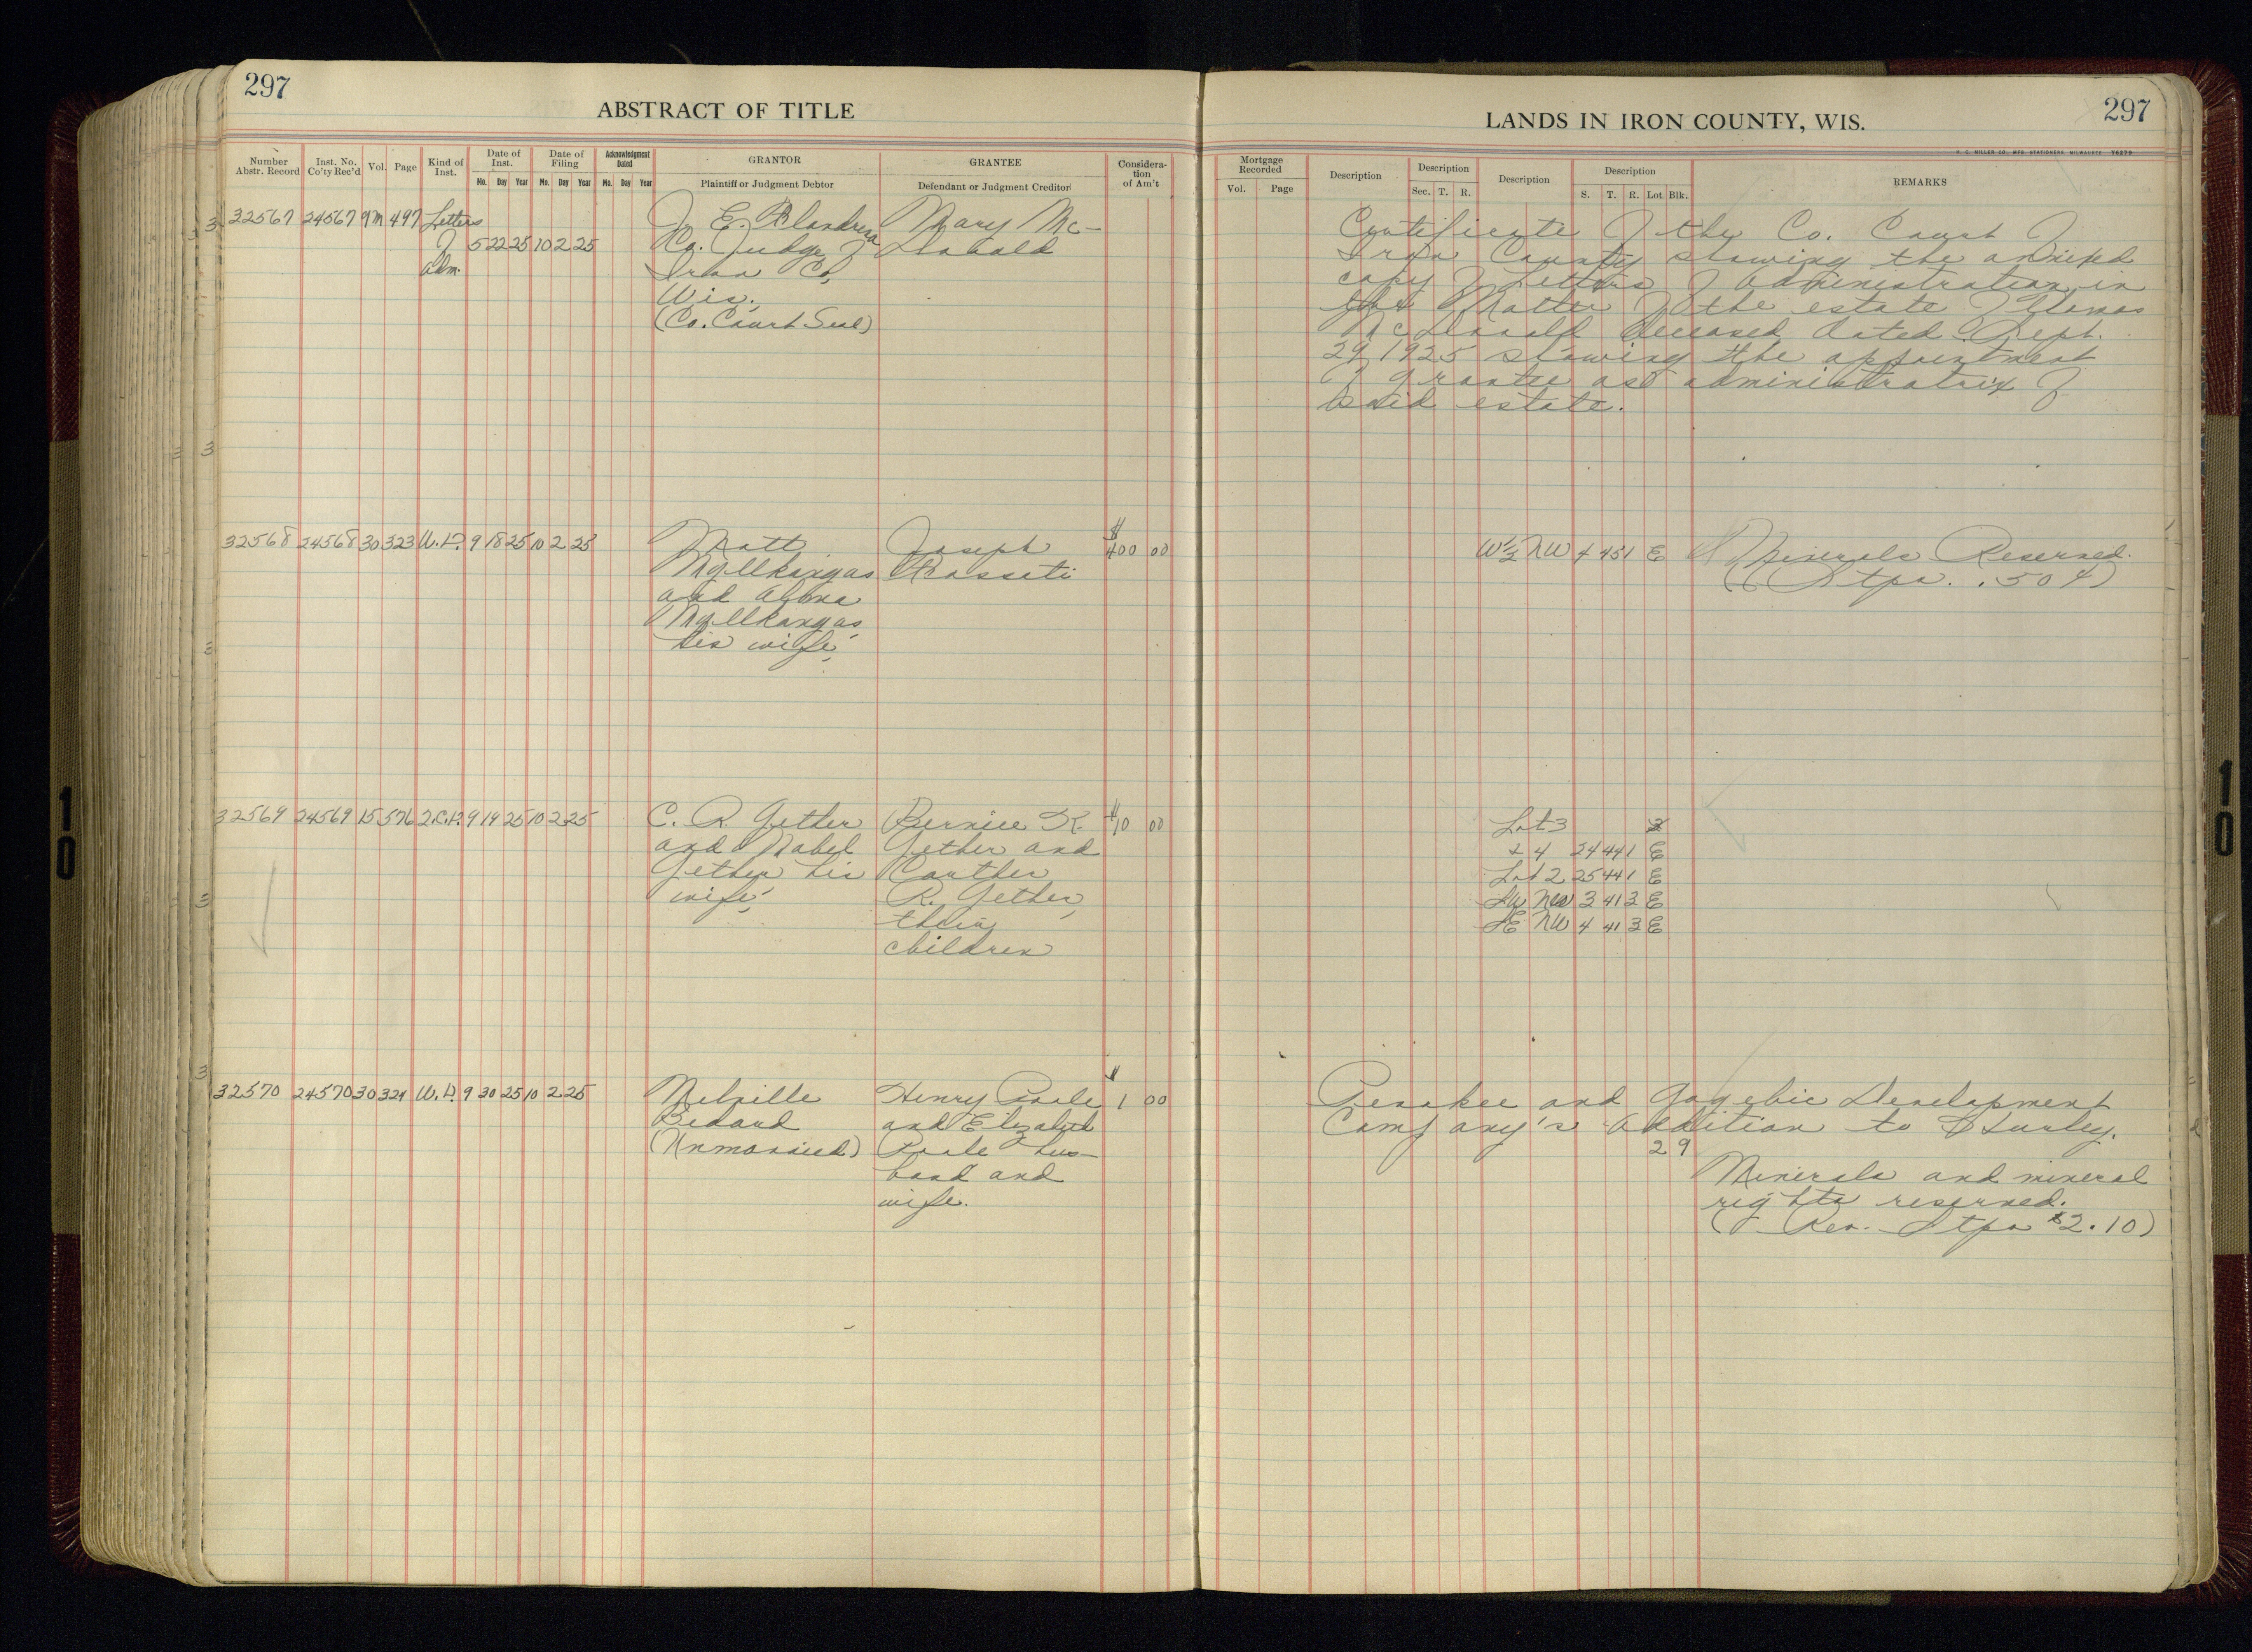 297
ABSTRACT OF TITLE
Number Abstr. Record
Inst. No. Co'ty Rec'd
Vol.
Page
Kind of Inst.
Date of Inst.
Mo. Day Year
Date of Filing
Mo. Day Year
Acknowledgment Dated
Mo. Day Year
GRANTOR
Plaintiff or Judgment Debtor
GRANTEE
Defendant or Judgment Creditor
Considera-
tion
of Am't
32567 24567 9m 497 Letters J. E. Mary Mc-
of 5 22 25 10 2 25 Co. Judge of Donald
adm. Iron Co,
Wis.
(Co. Court Seal)
32568 24568 30 323 W.D. 9 18 25 10 2 25 Matt Joseph $400 00
Myllkangas
and
Myllkangas
his wife
32569 24569 15 576 2.C.D. 9 19 25 10 2 25 C. R. Gether Bernice K. $10 00
and Mabel Gether and
Gether his
wife, R. Gether,
their
children
32570 24570 30 324 W.D. 9 30 25 10 2 25 Melville Henry Poole $1 00
Bedard and Elizabeth
(Unmarried) Poole hus-
band and
wife.
LANDS IN IRON COUNTY, WIS.
297
H. C. MILLER CO., MFG. STATIONERS, MILWAUKEE Y6279
Mortgage Recorded
Vol. Page
Description
Description
Sec. T. R.
Description
Description
S. T. R. Lot Blk.
REMARKS
Certificate of the Co. Court of
Iron County showing the annexed
copy of Letters of Administration in
the Matter of the estate of
McDonald deceased dated Sept.
29, 1925 showing the appointment
of grantee as administratrix of
said estate.
W½ NW 4 45 1 E Minerals Reserved.
( Stps. .50¢)
Lot 3
& 4 24 44 1 E
Lot 2 25 44 1 E
SW 3 41 3 E
SE NW 4 41 3 E
Penokee and Gogebic Development
Company's Addition to Hurley.
29
Minerals and mineral
rights reserved.
(Rev. Stps $2.10)
10
10